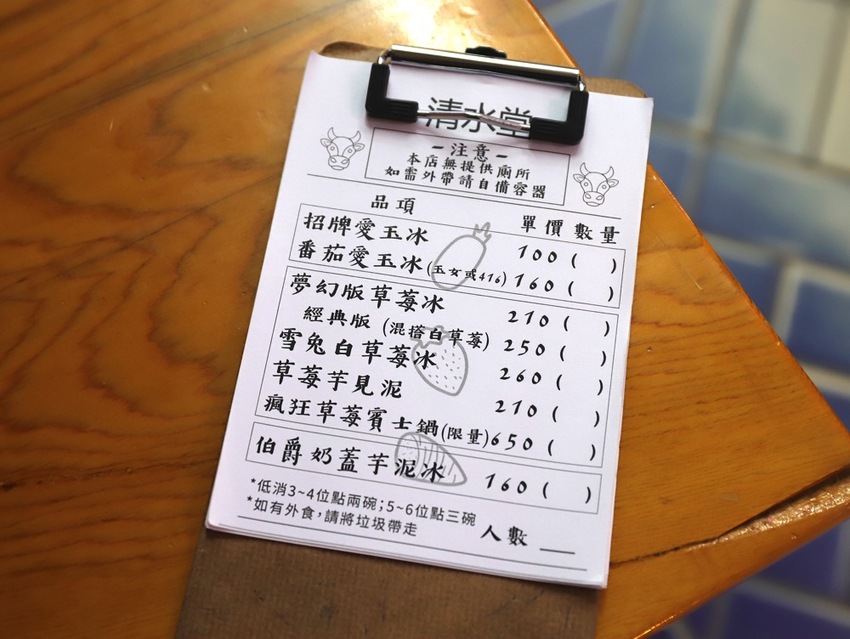 清水堂
-注意-
本店無提供廁所
如需外帶請自備容器
品項 單價 數量
招牌愛玉冰 100 ( )
番茄愛玉冰(玉女或416) 160 ( )
夢幻版草莓冰 210 ( )
經典版 (混搭白草莓) 250 ( )
雪兔白草莓冰 260 ( )
草莓芋見泥 210 ( )
瘋狂草莓賓士鍋(限量) 650 ( )
伯爵奶蓋芋泥冰 160 ( )
*低消3~4位點兩碗;5~6位點三碗
*如有外食,請將垃圾帶走
人數 __